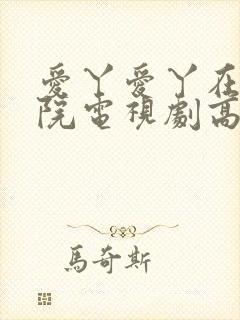 愛丫愛丫在
院電視劇高
馬奇斯